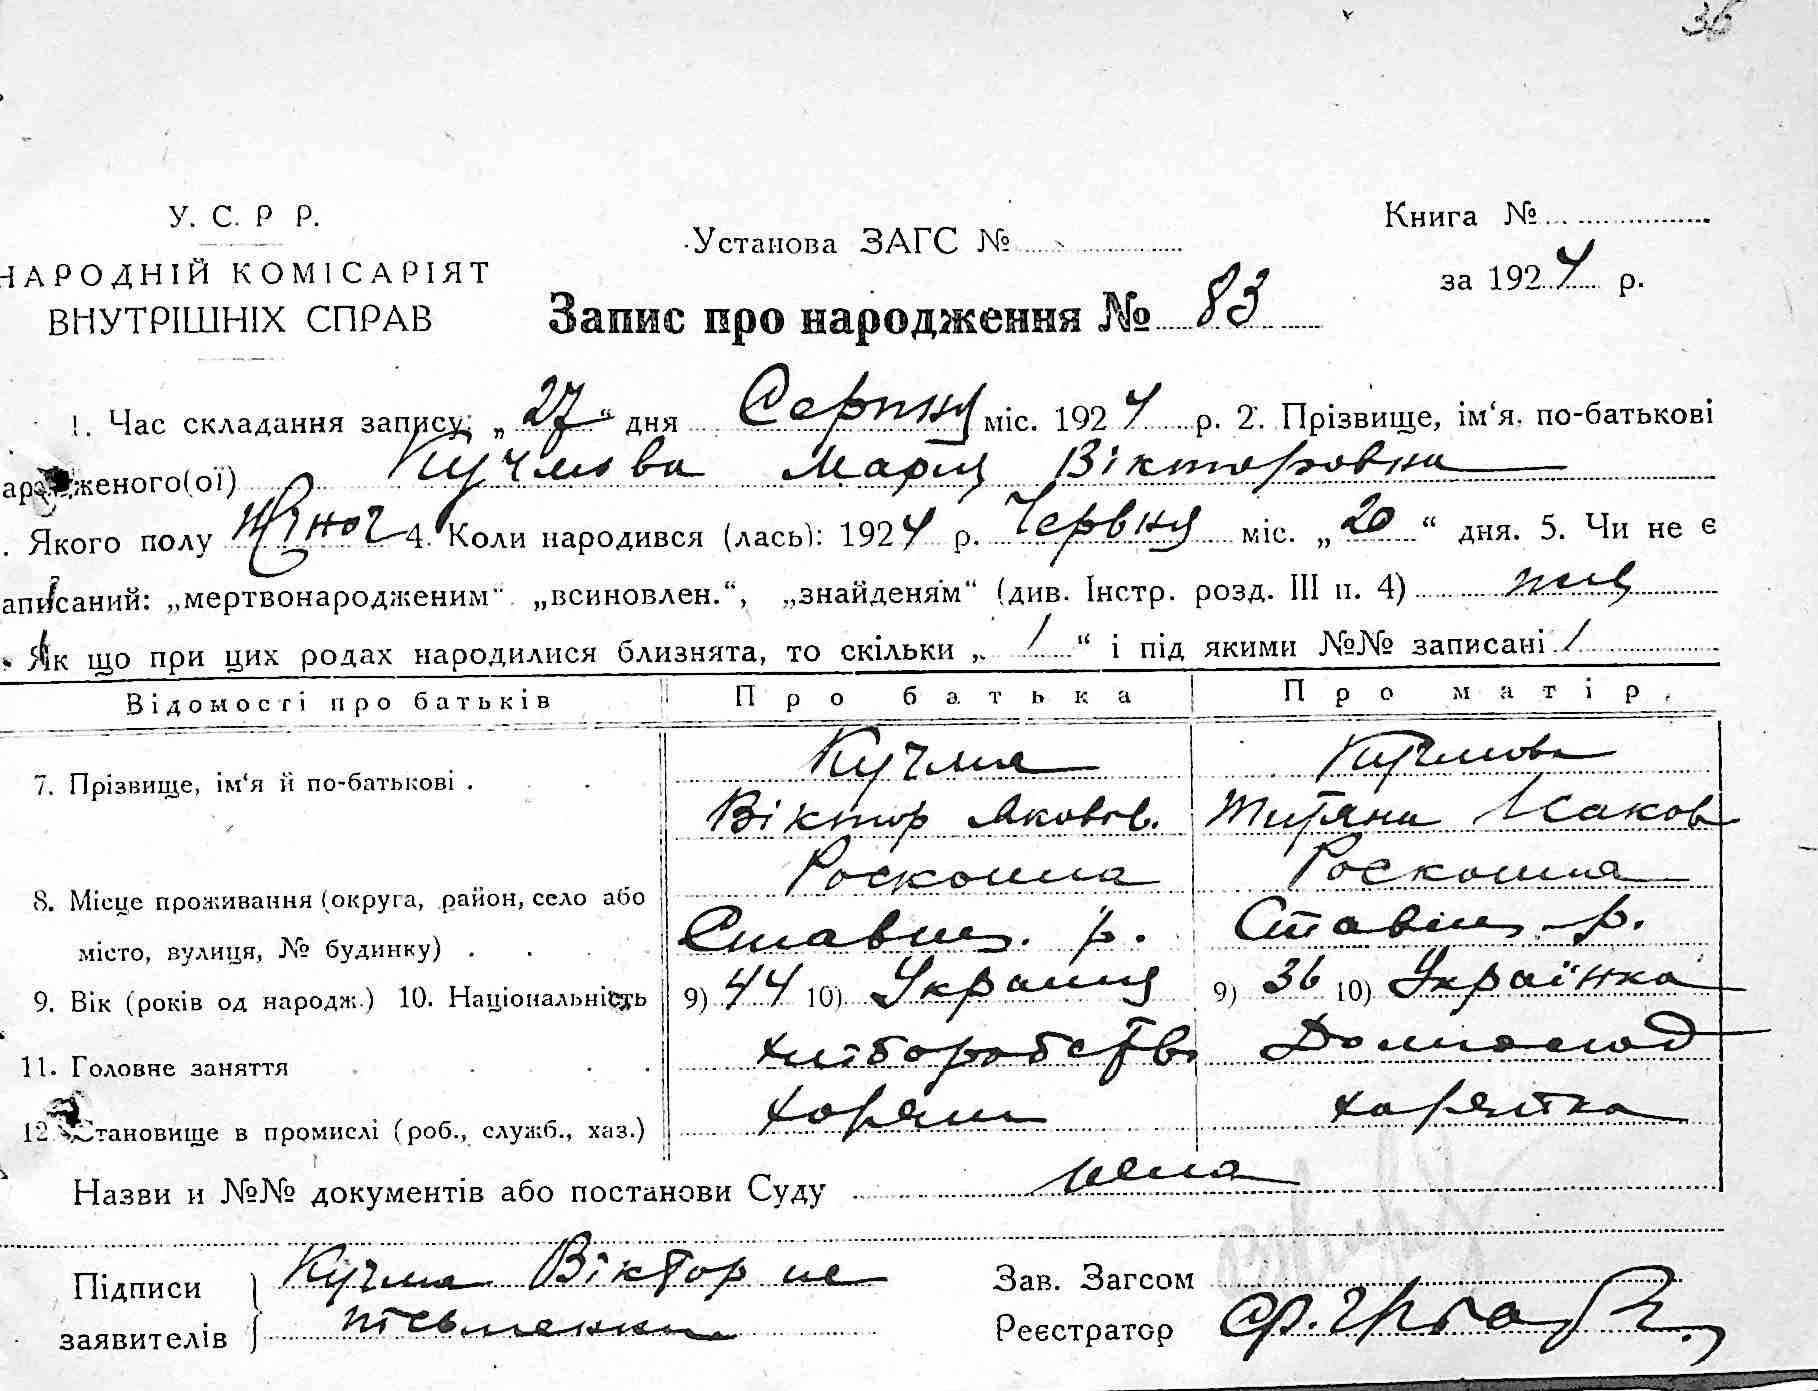 36
У. С. Р Р.
НАРОДНІЙ КОМІСАРІЯТ
ВНУТРІШНІХ СПРАВ
Установа ЗАГС №
Книга №
за 1924 р.
Запис про народження № 83
1. Час складання запису: „27“ дня Серпня міс. 1924 р. 2. Прізвище, ім‘я, по-батькові
ародженого(ої) Кучмова Марія Вікторовна
. Якого полу жіноч 4. Коли народився (лась): 1924 р. Червня міс. „20“ дня. 5. Чи не є
аписаний: „мертвонародженим“ „всиновлен.“, „знайденям“ (див. Інстр. розд. III п. 4)
. Як що при цих родах народилися близнята, то скільки „ / “ і під якими №№ записані /
Відомості про батьків Про батька Про матір.
7. Прізвище, ім‘я й по-батькові . Кучма Кучмова
Віктор Яковов. Титяна Исаков
8. Місце проживання (округа, район, село або Роскошна Роскошна
місто, вулиця, № будинку) . Ставищ. р. Ставищ. р.
9. Вік (років од народж.) 10. Національність 9) 44 10) Украинц 9) 36 10) Українка
11. Головне заняття хліборобств Домогосод
12. Становище в промислі (роб., служб., хаз.) хозяин хозяйка
Назви и №№ документів або постанови Суду нема
Підписи Кучма Віктор не Зав. Загсом
заявителів письменний Реєстратор